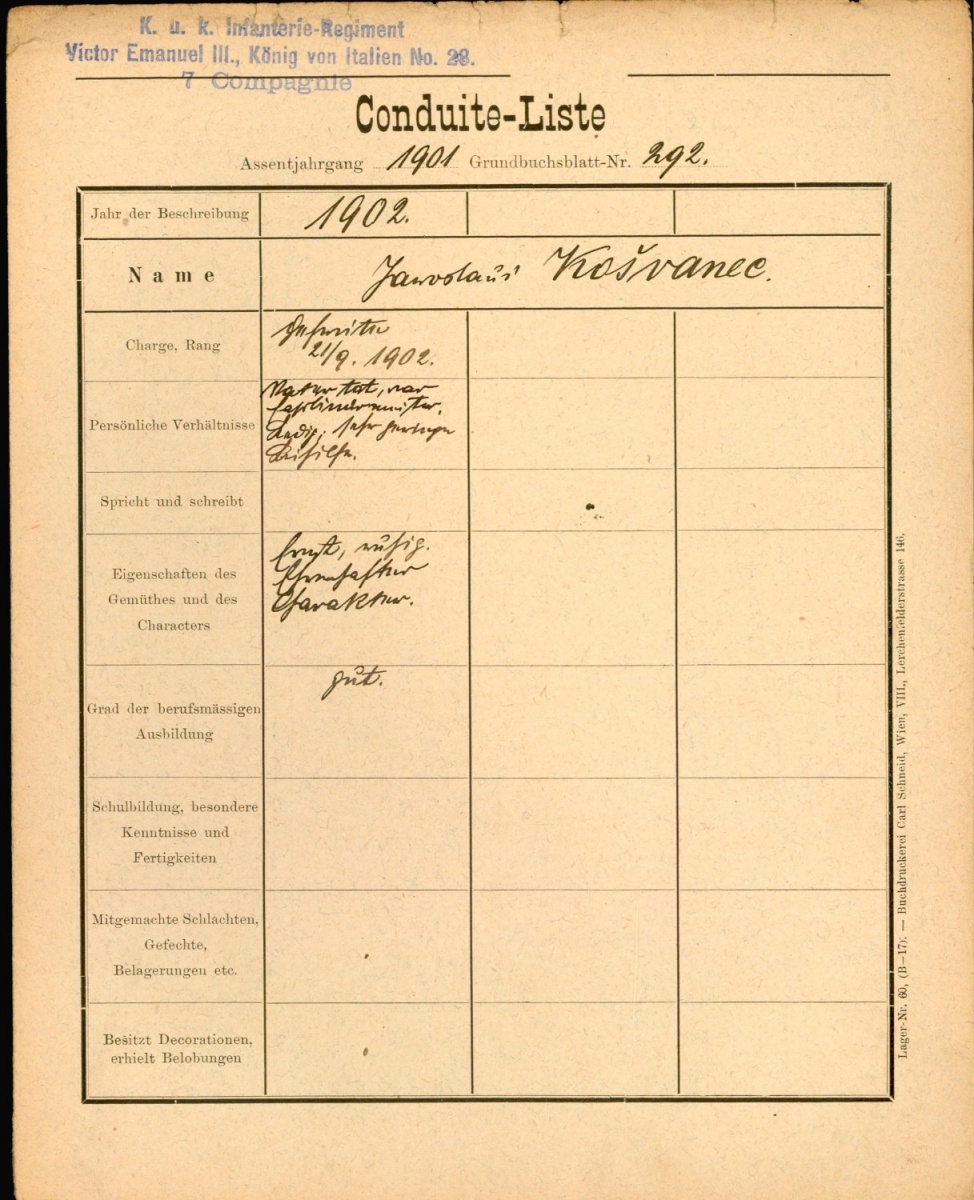 K. u. k. Infanterie-Regiment
Victor Emanuel III., König von Italien No. 28.
7 Compagnie
Conduite-Liste
Assentjahrgang 1901 Grundbuchsblatt-Nr. 292.
Jahr der Beschreibung 1902.
Name Jaroslaus Košvanec.
Charge, Rang
Gefreiter
21/9. 1902.
Persönliche Verhältnisse
Vater tot, war
Ledig; sehr geringe
Beihilfe.
Spricht und schreibt
Eigenschaften des
Gemüthes und des
Characters
Ernst, ruhig.
Ehrenhafter
Charakter.
Grad der berufsmässigen
Ausbildung
gut.
Schulbildung, besondere
Kenntnisse und
Fertigkeiten
Mitgemachte Schlachten,
Gefechte,
Belagerungen etc.
Besitzt Decorationen,
erhielt Belobungen
Lager-Nr. 60, (B—17). — Buchdruckerei Carl Schneid, Wien, VIII., Lerchenfelderstrasse 146.